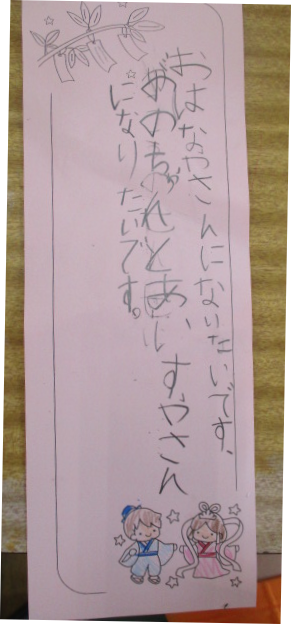 おはなやさんになりたいです、
れとあい、すやさん
になりたいです。